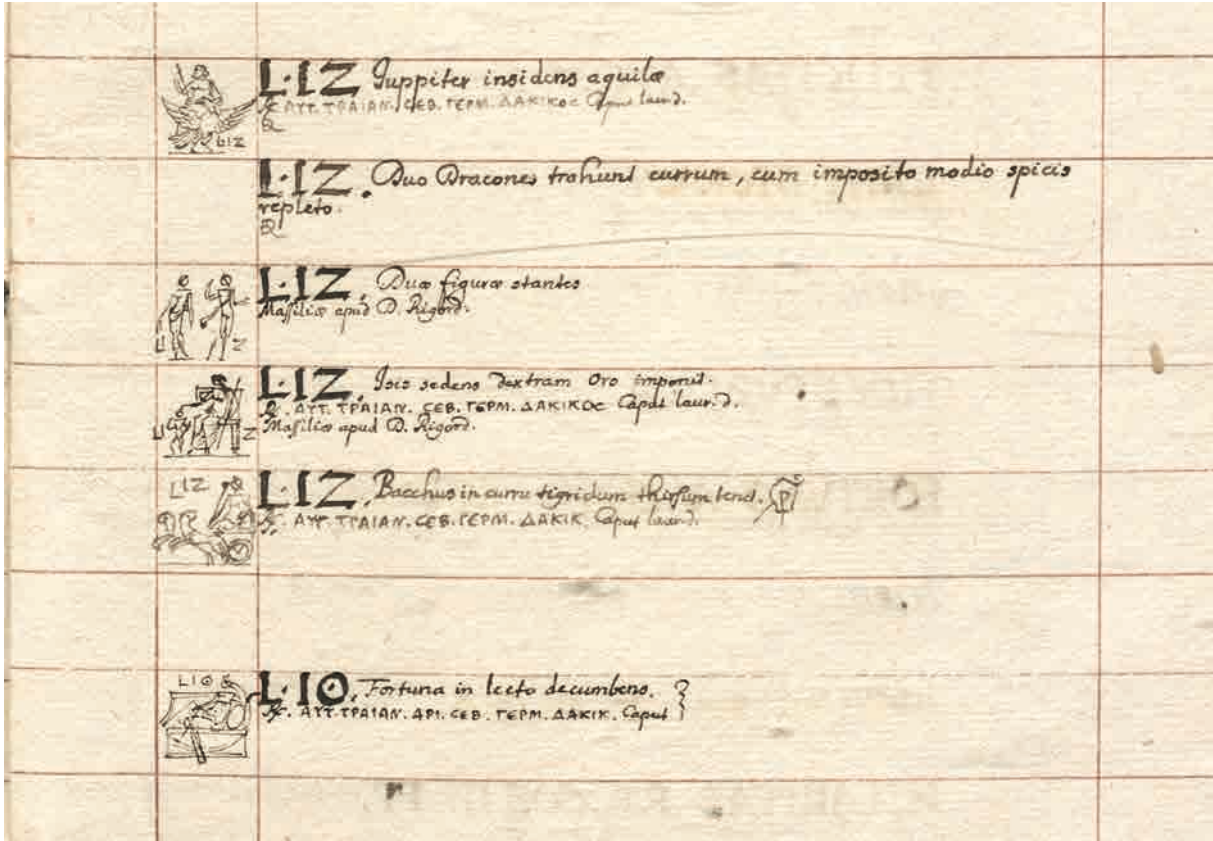 L·IZ Juppiter insidens aquilæ
ΑΥΤ. ΤΡΑΙΑΝ. CΕΒ. ΓΕΡΜ. ΔΑΚΙΚΟC Caput laur. d.
LIZ
L·IZ. Duo Dracones trahunt currum, cum imposito modio spicis
repleto.
L·IZ. Duæ figuræ stantes
Massiliæ apud D. Rigord.
LI Z
L·IZ. Isis sedens dextram Oro imponit.
ΑΥΤ. ΤΡΑΙΑΝ. CΕΒ. ΓΕΡΜ. ΔΑΚΙΚΟC Caput laur. d.
Massiliæ apud D. Rigord.
LI Z
LIZ
L·IZ. Bacchus in curru tigridum thirsum tenet. P
ΑΥΤ. ΤΡΑΙΑΝ. CΕΒ. ΓΕΡΜ. ΔΑΚΙΚ. Caput laur. d.
LIΘ
L·IΘ. Fortuna in lecto decumbens.
ΑΥΤ. ΤΡΑΙΑΝ. ΑΡΙ. CΕΒ. ΓΕΡΜ. ΔΑΚΙΚ. Caput